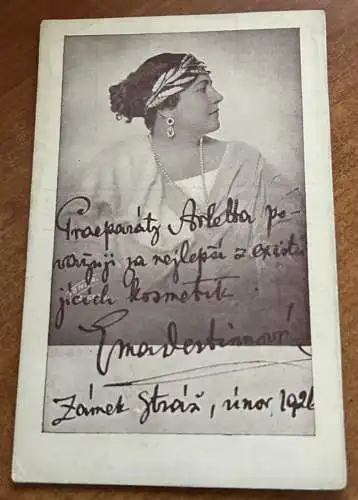 Praeparáty Arletta po-
važuji za nejlepší z existu
jících kosmetik.
Emadestinnová
Zámek Stráž, únor, 1926